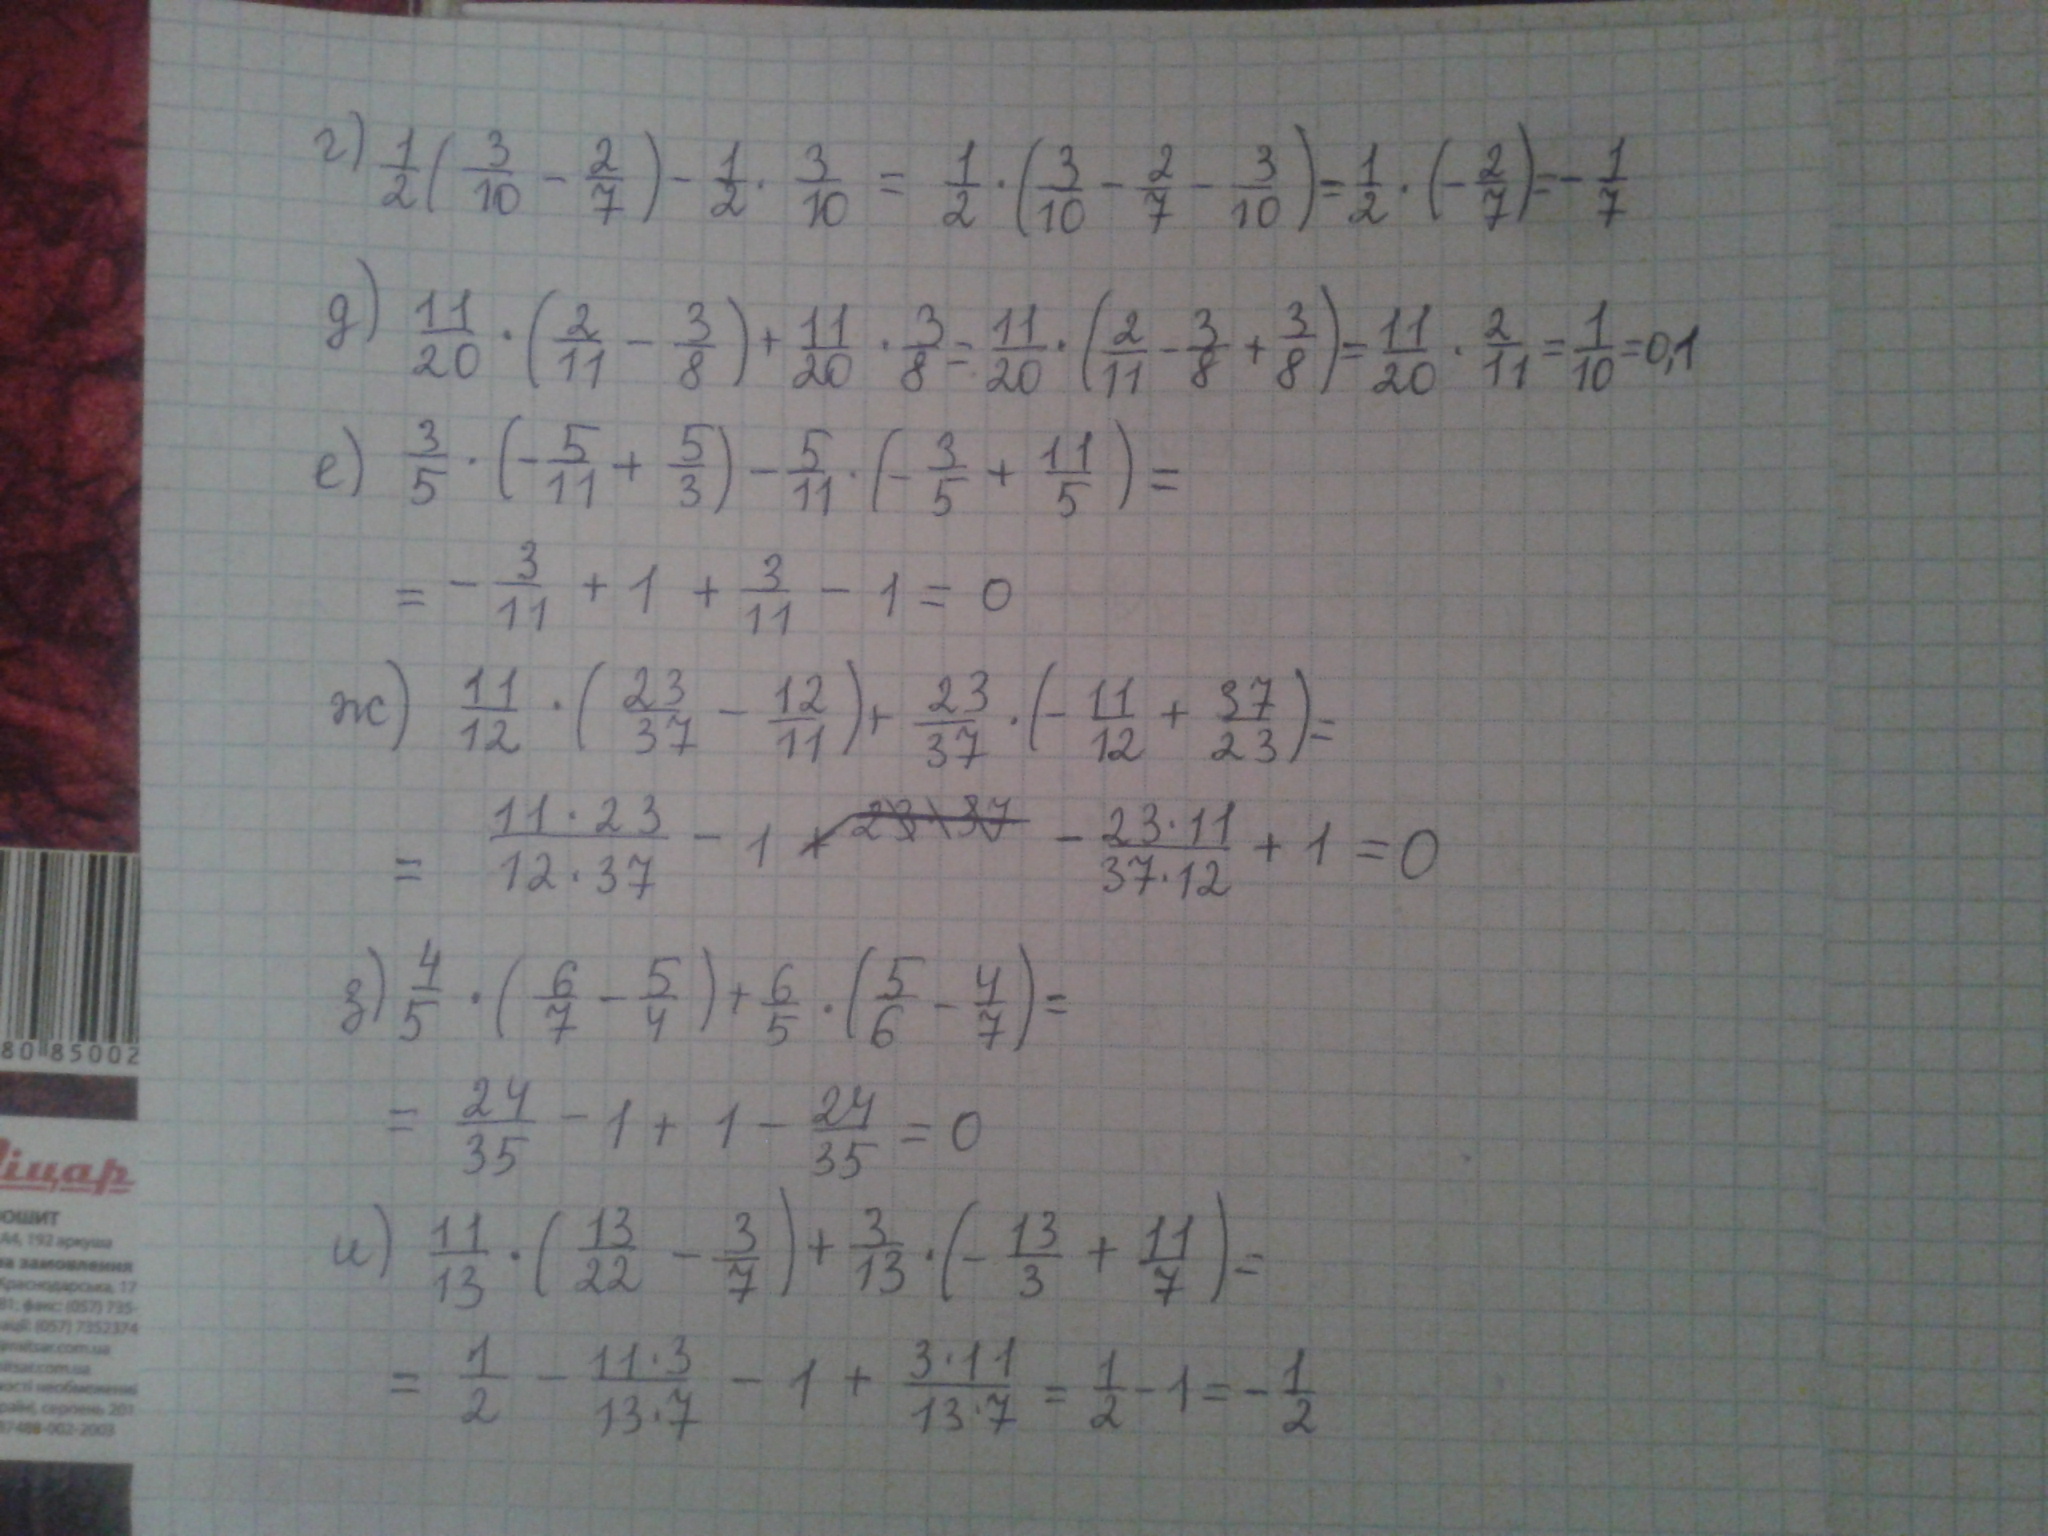 г) 1/2 ( 3/10 - 2/7 ) - 1/2 · 3/10 = 1/2 · ( 3/10 - 2/7 - 3/10 ) = 1/2 · ( - 2/7 ) = - 1/7
д) 11/20 · ( 2/11 - 3/8 ) + 11/20 · 3/8 = 11/20 · ( 2/11 - 3/8 + 3/8 ) = 11/20 · 2/11 = 1/10 = 0,1
е) 3/5 · ( - 5/11 + 5/3 ) - 5/11 · ( - 3/5 + 11/5 ) =
= - 3/11 + 1 + 3/11 - 1 = 0
ж) 11/12 · ( 23/37 - 12/11 ) + 23/37 · ( - 11/12 + 37/23 ) =
= 11·23/12·37 - 1 - 23·11/37·12 + 1 = 0
з) 4/5 · ( 6/7 - 5/4 ) + 6/5 · ( 5/6 - 4/7 ) =
= 24/35 - 1 + 1 - 24/35 = 0
и) 11/13 · ( 13/22 - 3/7 ) + 3/13 · ( - 13/3 + 11/7 ) =
= 1/2 - 11·3/13·7 - 1 + 3·11/13·7 = 1/2 - 1 = - 1/2
80 85002
іцар
ОШИТ
А4, 192 аркуша
замовлення
Краснодарська, 17
факс: (057) 735-
(057) 7352374
серпень 201
-002-2003